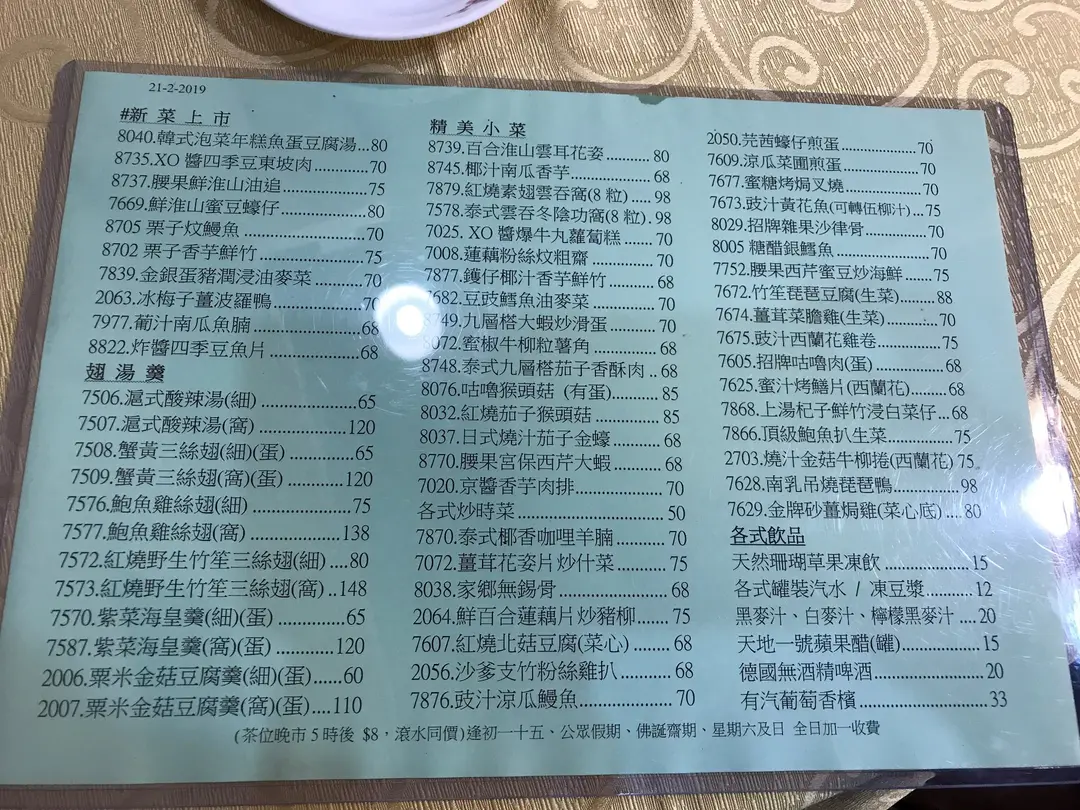 21-2-2019
#新菜上市
8040.韓式泡菜年糕魚蛋豆腐湯...80
8735.XO 醬四季豆東坡肉..........70
8737.腰果鮮淮山油追...............75
7669.鮮淮山蜜豆蠔仔...............80
8705 栗子炆鰻魚......................70
8702 栗子香芋鮮竹..................75
7839.金銀蛋豬潤浸油麥菜.......70
2063.冰梅子薑波羅鴨..............70
7977.葡汁南瓜魚腩...................68
8822.炸醬四季豆魚片...............68
翅湯羹
7506.滬式酸辣湯(細) ...................65
7507.滬式酸辣湯(窩) .................120
7508.蟹黃三絲翅(細)(蛋) ............65
7509.蟹黃三絲翅(窩)(蛋) ..........120
7576.鮑魚雞絲翅(細)...................75
7577.鮑魚雞絲翅(窩).................138
7572.紅燒野生竹笙三絲翅(細)....80
7573.紅燒野生竹笙三絲翅(窩)..148
7570.紫菜海皇羹(細)(蛋).............65
7587.紫菜海皇羹(窩)(蛋)...........120
2006.粟米金菇豆腐羹(細)(蛋).....60
2007.粟米金菇豆腐羹(窩)(蛋)....110
精美小菜
8739.百合淮山雲耳花姿...........80
8745.椰汁南瓜香芋..................68
7879.紅燒素翅雲吞窩(8 粒) .....98
7578.泰式雲吞冬陰功窩(8 粒).98
7025. XO 醬爆牛丸蘿蔔糕.......70
7008.蓮藕粉絲炆粗齋..............70
7877.鑊仔椰汁香芋鮮竹...........68
7682.豆豉鱈魚油麥菜..............70
8749.九層楛大蝦炒滑蛋...........70
8072.蜜椒牛柳粒薯角..............68
8748.泰式九層楛茄子香酥肉..68
8076.咕嚕猴頭菇 (有蛋)...........85
8032.紅燒茄子猴頭菇..............85
8037.日式燒汁茄子金蠔...........68
8770.腰果宮保西芹大蝦...........68
7020.京醬香芋肉排..................70
各式炒時菜...............................50
7870.泰式椰香咖哩羊腩...........70
7072.薑茸花姿片炒什菜...........75
8038.家鄉無錫骨......................68
2064.鮮百合蓮藕片炒豬柳.......75
7607.紅燒北菇豆腐(菜心) .......68
2056.沙爹支竹粉絲雞扒...........68
7876.豉汁涼瓜鰻魚..................70
2050.芫茜蠔仔煎蛋..............70
7609.涼瓜菜圃煎蛋..............70
7677.蜜糖烤焗叉燒..............70
7673.豉汁黃花魚(可轉伍柳汁)...75
8029.招牌雜果沙律骨...........70
8005 糖醋銀鱈魚.................70
7752.腰果西芹蜜豆炒海鮮......75
7672.竹笙琵琶豆腐(生菜)........88
7674.薑茸菜膽雞(生菜)..........70
7675.豉汁西蘭花雞卷............75
7605.招牌咕嚕肉(蛋) .............68
7625.蜜汁烤鱔片(西蘭花).......68
7868.上湯杞子鮮竹浸白菜仔...68
7866.頂級鮑魚扒生菜............75
2703.燒汁金菇牛柳捲(西蘭花) 75
7628.南乳吊燒琵琶鴨............98
7629.金牌砂薑焗雞(菜心底) ....80
各式飲品
天然珊瑚草果凍飲 ..................15
各式罐裝汽水 / 凍豆漿..........12
黑麥汁、白麥汁、檸檬黑麥汁 ....20
天地一號蘋果醋(罐)................15
德國無酒精啤酒.......................20
有汽葡萄香檳..........................33
(茶位晚市 5 時後 $8，滾水同價)逢初一十五、公眾假期、佛誕齋期、星期六及日 全日加一收費